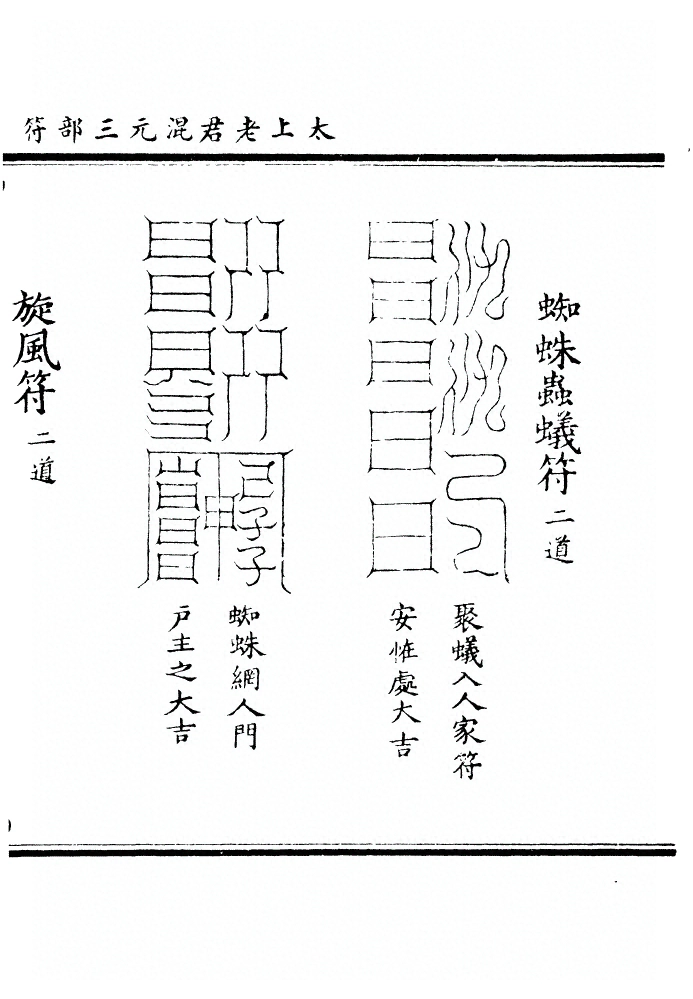 太上老君混元三部符
蜘蛛蟲蟻符二道
聚蟻入人家符
安恠處大吉
蜘蛛網人門
戶主之大吉
旋風符二道